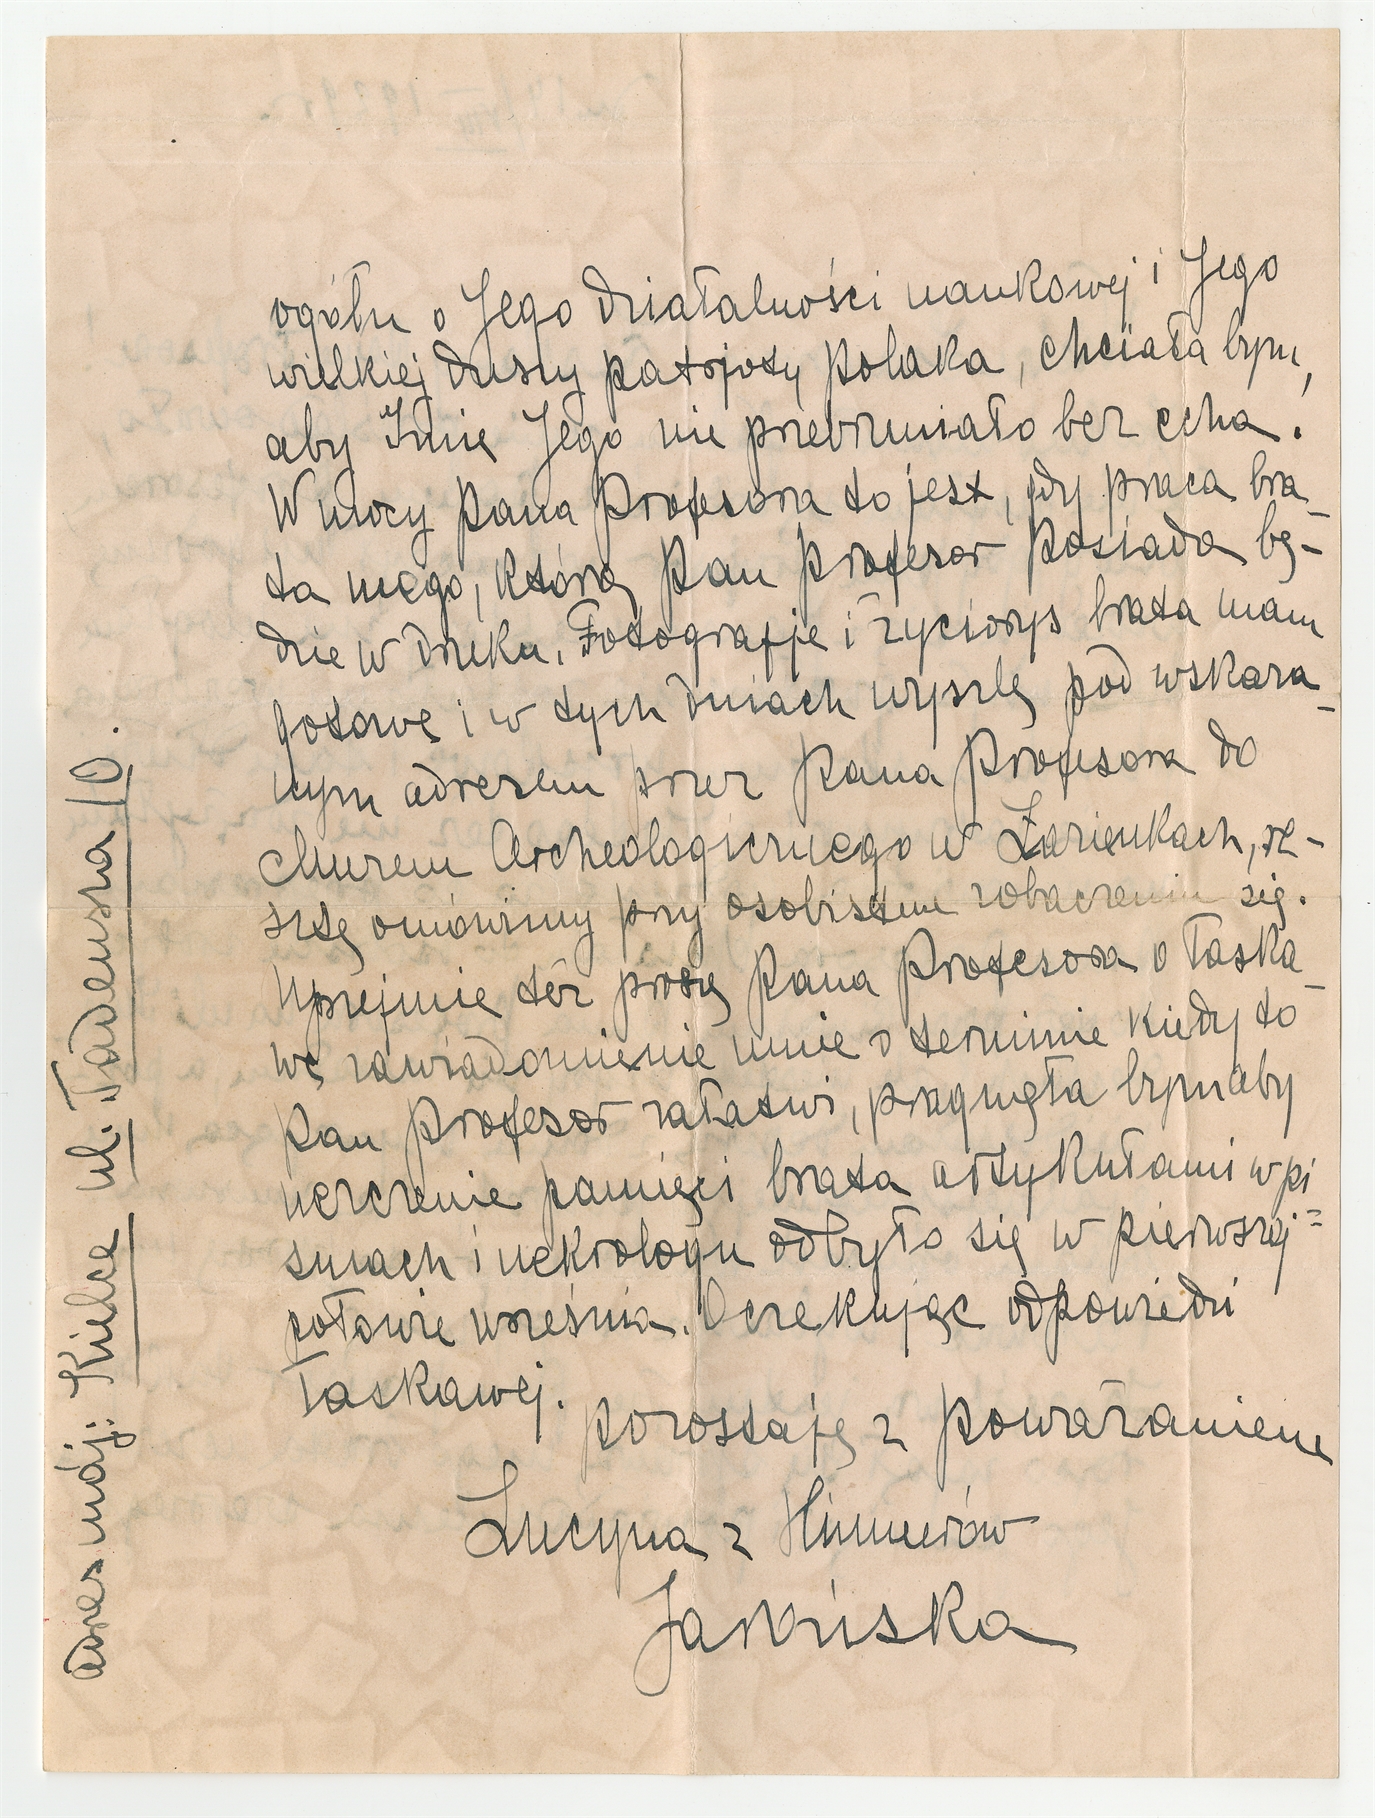 ogółu o Jego działalności naukowej i Jego
wielkiej duszy patrjoty polaka, chciała bym,
aby Imię Jego nie przebrzmiało bez echa.
W mocy Pana Profesora to jest, gdy praca bra-
ta mego, którą Pan Profesor posiada bę-
dzie w druku. Fotografje i życiorys brata mam
gotowe i w tych dniach wyszlę pod wskaza-
nym adresem przez Pana Profesora do
Muzeum Archeologicznego w Łazienkach, re-
sztę omówimy przy osobistem zobaczeniu się.
Uprzejmie też proszę Pana Profesora o łaska-
we zawiadomienie mnie o terminie kiedy to
Pan Profesor załatwi, pragnęła bym aby
uczczenie pamięci brata artykułami w pi=
smach i nekrologu odbyło się w pierwszej
połowie września. Oczekując odpowiedzi
łaskawej.
pozostaję z poważaniem
Lucyna z Hummerów
Jasińska
Adres mój: Kielce ul. Tadeusza 10.